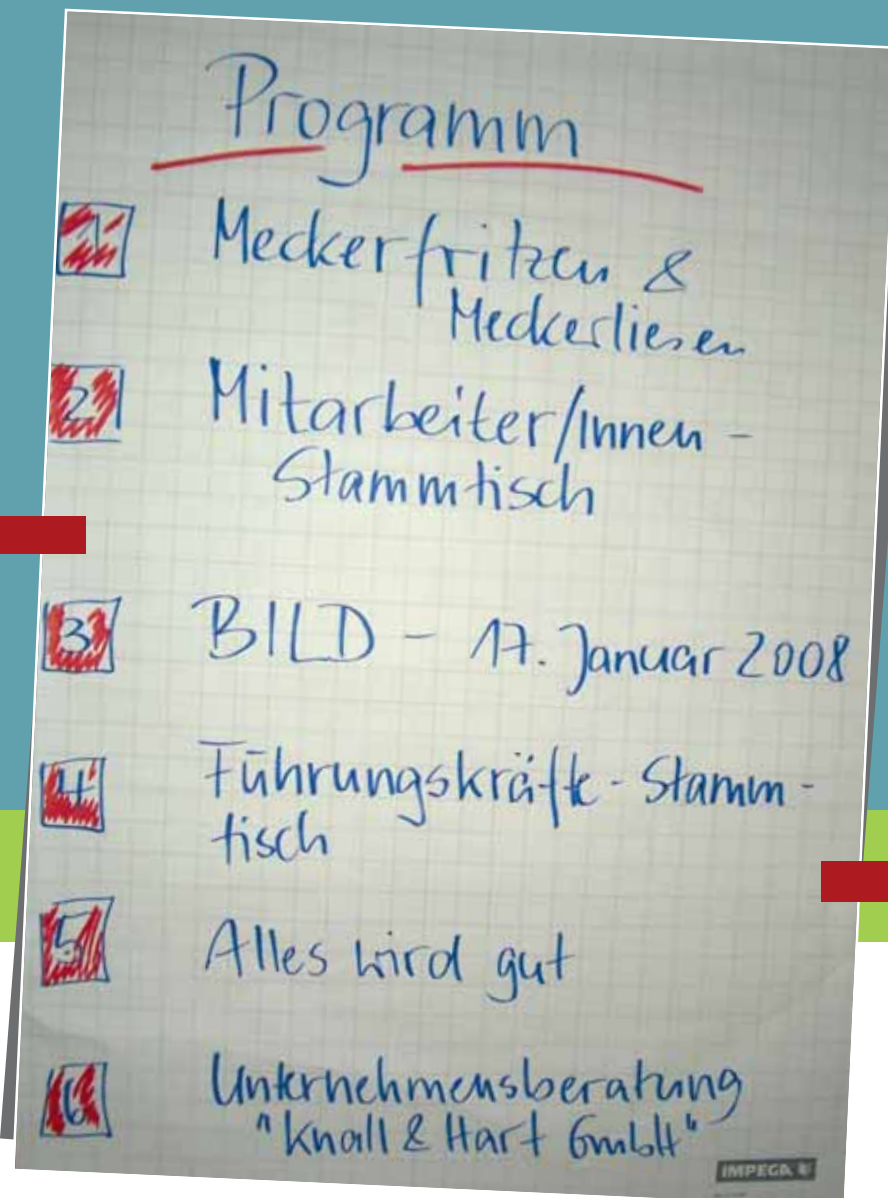 Programm
1 Meckerfritzen &
Meckerliesen
2 Mitarbeiter/Innen -
Stammtisch
3 BILD - 17. Januar 2008
4 Führungskräfte - Stamm -
tisch
5 Alles wird gut
6 Unternehmensberatung
"Knall & Hart GmbH"
IMPEGA